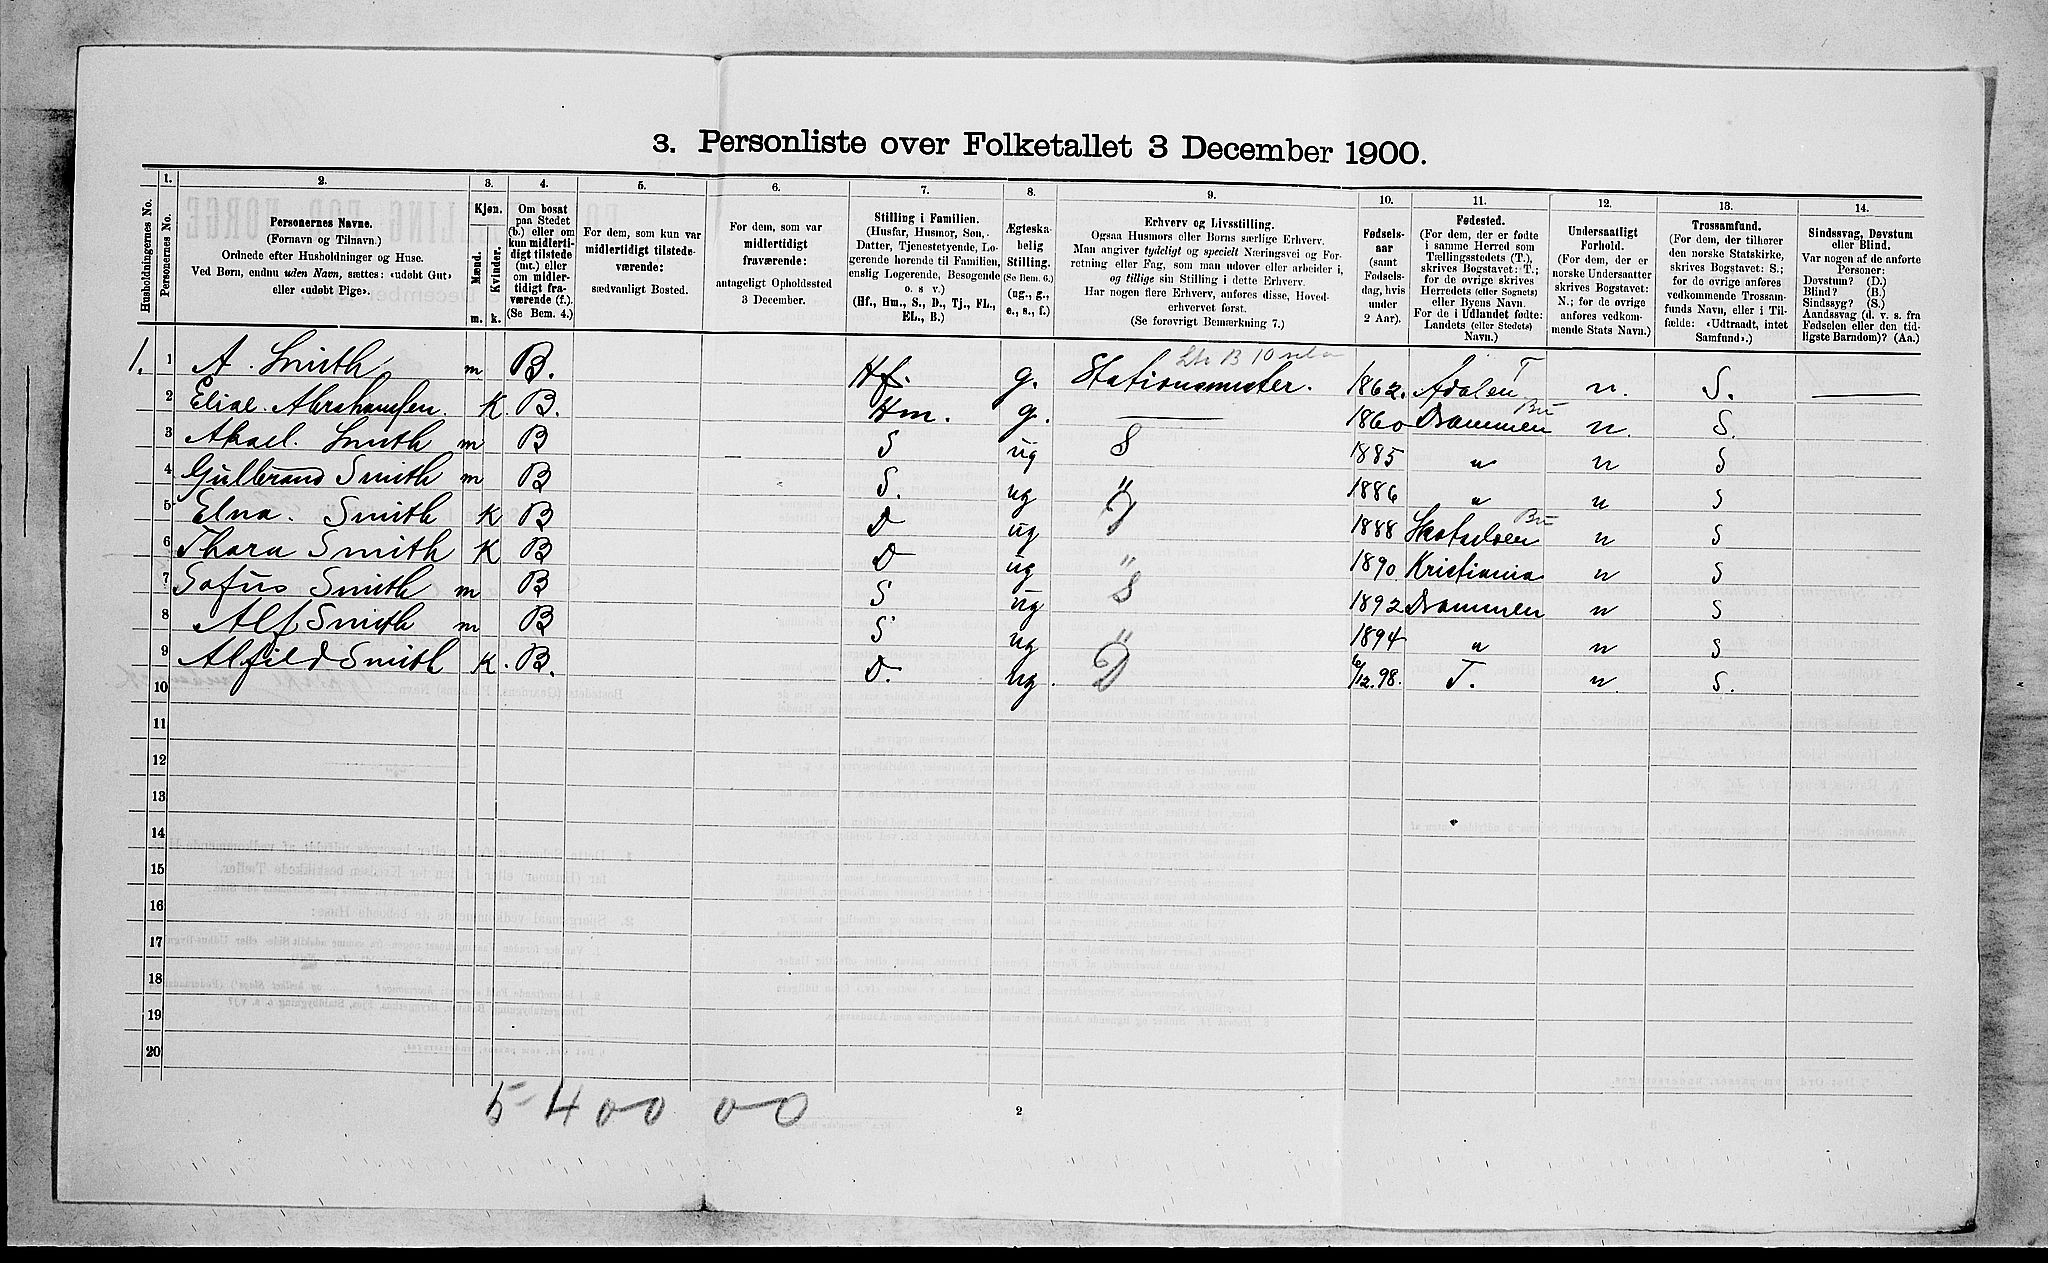 3. Personliste over Folketallet 3 December 1900.
Husholdningernes No.
1. Personernes No.
2. Personernes Navne. (Fornavn og Tilnavn.) Ordnede efter Husholdninger og Huse. Ved Børn, endnu uden Navn, sættes: «udøbt Gut» eller «udøbt Pige».
3. Kjøn. Mænd. m. Kvinder. k.
4. Om bosat paa Stedet (b.) eller om kun midlertidigt tilstede (mt.) eller om midlertidigt fraværende (f.). (Se Bem. 4.)
5. For dem, som kun var midlertidigt tilstedeværende: sædvanligt Bosted.
6. For dem, som var midlertidigt fraværende: antageligt Opholdssted 3 December.
7. Stilling i Familien. (Husfar, Husmor, Søn, Datter, Tjenestetyende, Logerende hørende til Familien, enslig Logerende, Besøgende o. s. v.) (Hf., Hm., S., D., Tj., FL., EL., B.)
8. Ægteskabelig Stilling. (Se Bem. 6.) (ug., g., e., s., f.)
9. Erhverv og Livsstilling. Ogsaa Husmors eller Børns særlige Erhverv. Man angiver tydeligt og specielt Næringsvei og Forretning eller Fag, som man udøver eller arbeider i, og tillige sin Stilling i dette Erhverv. Har nogen flere Erhverv, anføres disse, Hovederhvervet først. (Se forøvrigt Bemærkning 7.)
10. Fødselsaar (samt Fødselsdag, hvis under 2 Aar).
11. Fødested. (For dem, der er fødte i samme Herred som Tællingsstedets (T.), skrives Bogstavet: T.; for de øvrige skrives Herredets (eller Sognets) eller Byens Navn. For de i Udlandet fødte: Landets (eller Stedets) Navn.)
12. Undersaatligt Forhold. (For dem, der er norske Undersaatter skrives Bogstavet: N.; for de øvrige anføres vedkommende Stats Navn.)
13. Trossamfund. (For dem, der tilhører den norske Statskirke, skrives Bogstavet: S.; for de øvrige anføres vedkommende Trossamfunds Navn, eller i Tilfælde: «Udtraadt, intet Samfund».)
14. Sindssvag, Døvstum eller Blind. Var nogen af de anførte Personer: Døvstum? (D.) Blind? (B.) Sindssyg? (S.) Aandssvag (d. v. s. fra Fødselen eller den tidligste Barndom)? (Aa.)
1. 1 A. Smith m B. Hf. g. Stationsmester. 1862. Adalen T n. S.
2 Elise. Abrahamsen. K. B. Hm. g. 1860 Drammen Bu n. S.
3 Aksel. Smith m B S ug S 1885 " n S
4 Gulbrand Smith m B S. ug " 1886 " n S
5 Elna. Smith K B D ug D 1888 Bu n S
6 Thora Smith K B D ug " 1890 Kristiania n S
7 Sofus Smith m B S ug S 1892 Drammen n S
8 Alf Smith m B S ug " 1894 " n S
9 Alfild Smith K. B. D. ug. D 6/12. 98. T. n. S.
10
11
12
13
14
15
16
17
18
19
20
5-400 00
2